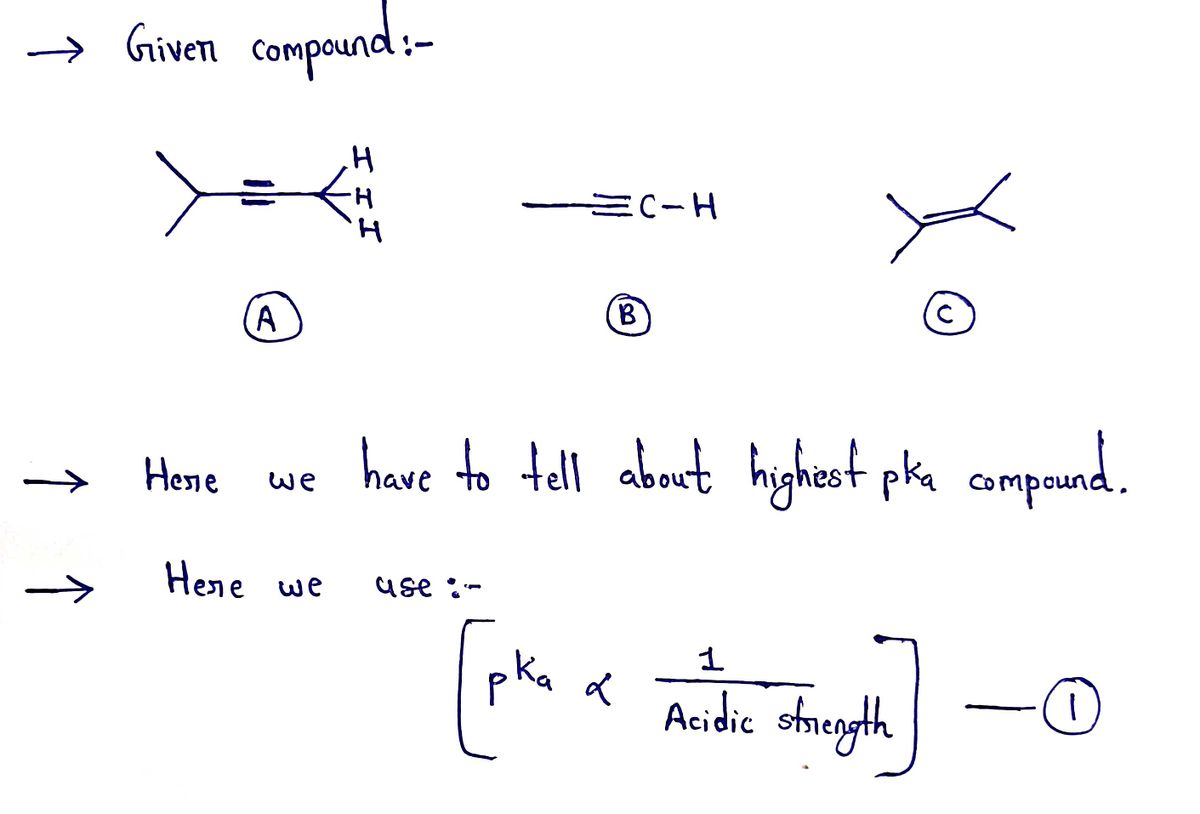 → Given compound:-
H
H
H
≡C-H
A
B
C
→ Here we have to tell about highest pka compound.
→ Here we use :-
[pKa ∝ 1 / Acidic strength] — 1